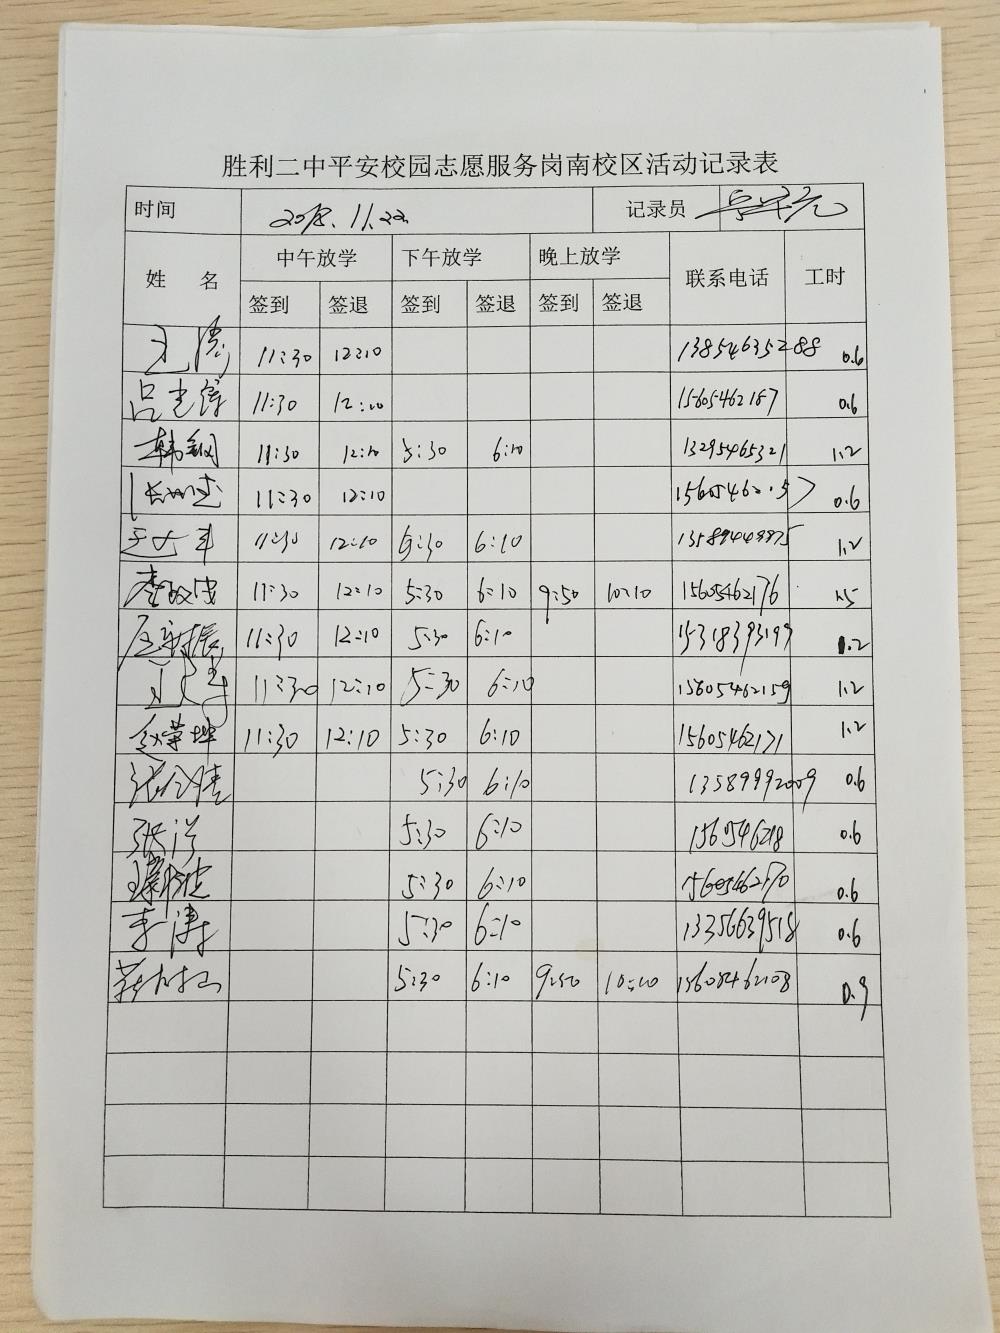 胜利二中平安校园志愿服务岗南校区活动记录表
时间 2018.11.22 记录员
姓 名 中午放学 下午放学 晚上放学 联系电话 工时
签到 签退 签到 签退 签到 签退
11:30 12:10 13854635288 0.6
11:30 12:10 0.6
韩钢 11:30 12:10 5:30 6:10 13295465321 1.2
11:30 12:10 0.6
11:30 12:10 5:30 6:10 1.2
11:30 12:10 5:30 6:10 9:50 10:10 15605462176 1.5
11:30 12:10 5:30 6:10 15318393199 1.2
11:30 12:10 5:30 6:10 15605462159 1.2
赵荣坤 11:30 12:10 5:30 6:10 15605462171 1.2
5:30 6:10 13589992009 0.6
张洋 5:30 6:10 0.6
5:30 6:10 15605462170 0.6
李涛 5:30 6:10 13356639518 0.6
5:30 6:10 9:50 10:10 15605462108 0.9